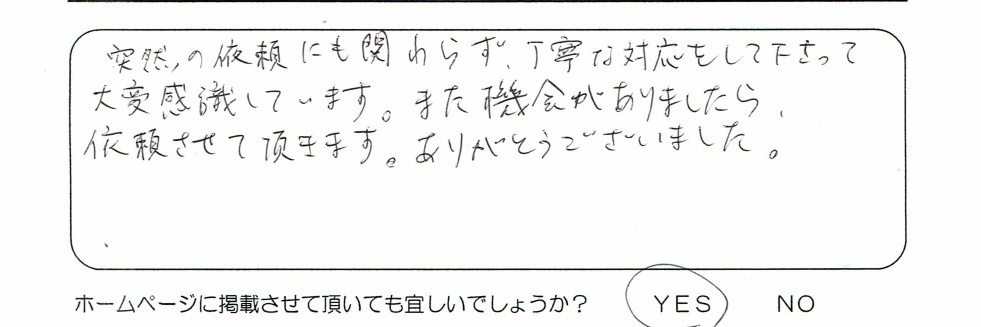 突然の依頼にも関わらず、丁寧な対応をして下さって
大変感識しています。また機会がありましたら、
依頼させて頂きます。ありがとうございました。
ホームページに掲載させて頂いても宜しいでしょうか？ YES NO